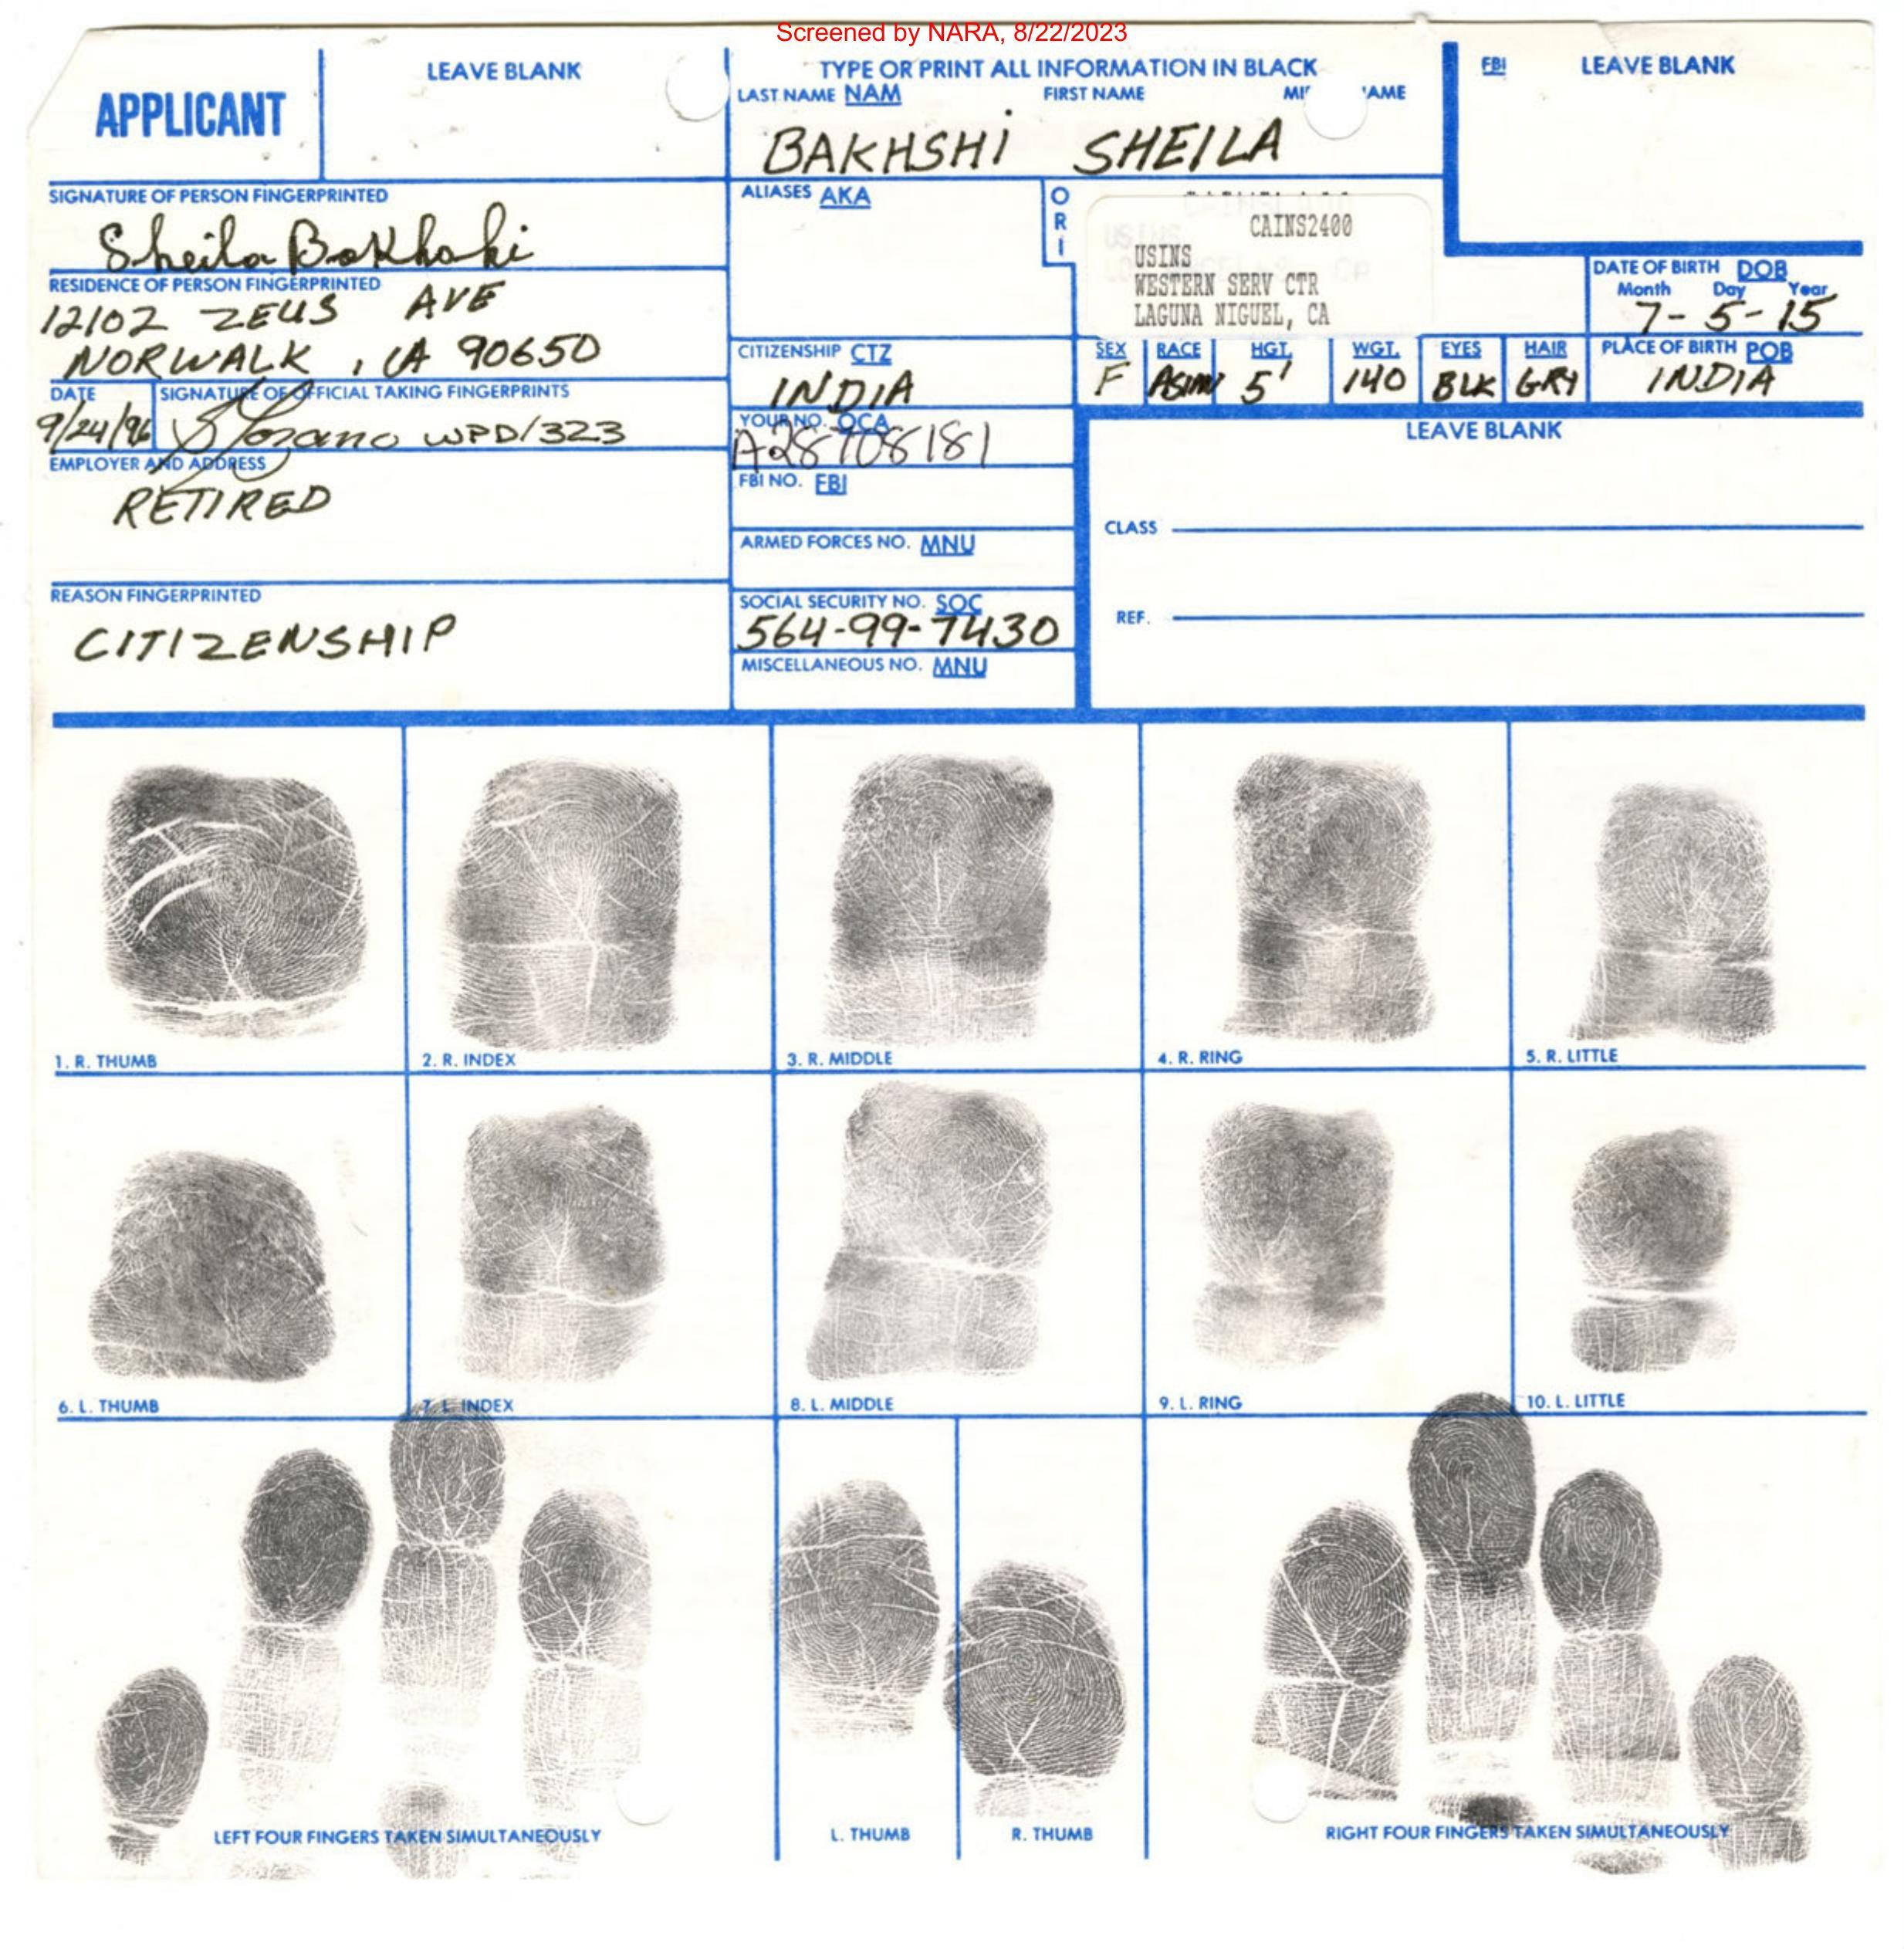 Screened by NARA, 8/22/2023
APPLICANT
LEAVE BLANK
TYPE OR PRINT ALL INFORMATION IN BLACK
LAST NAME NAM FIRST NAME
BAKHSHI SHEILA
FBI LEAVE BLANK
SIGNATURE OF PERSON FINGERPRINTED
Sheila Bakhshi
ALIASES AKA
ORI
CAINS2400
USINS
WESTERN SERV CTR
LAGUNA NIGUEL, CA
RESIDENCE OF PERSON FINGERPRINTED
12102 ZEUS AVE
NORWALK, CA 90650
DATE OF BIRTH DOB
Month Day Year
7-5-15
CITIZENSHIP CTZ
INDIA
SEX RACE HGT. WGT. EYES HAIR
F ASIAN 5' 140 BLK GRY
PLACE OF BIRTH POB
INDIA
DATE
9/24/96
SIGNATURE OF OFFICIAL TAKING FINGERPRINTS
WPD/323
YOUR NO. OCA
A28708181
LEAVE BLANK
EMPLOYER AND ADDRESS
RETIRED
FBI NO. FBI
CLASS
ARMED FORCES NO. MNU
REASON FINGERPRINTED
CITIZENSHIP
SOCIAL SECURITY NO. SOC
564-99-7430
REF.
MISCELLANEOUS NO. MNU
1. R. THUMB
2. R. INDEX
3. R. MIDDLE
4. R. RING
5. R. LITTLE
6. L. THUMB
7. L. INDEX
8. L. MIDDLE
9. L. RING
10. L. LITTLE
LEFT FOUR FINGERS TAKEN SIMULTANEOUSLY
L. THUMB
R. THUMB
RIGHT FOUR FINGERS TAKEN SIMULTANEOUSLY